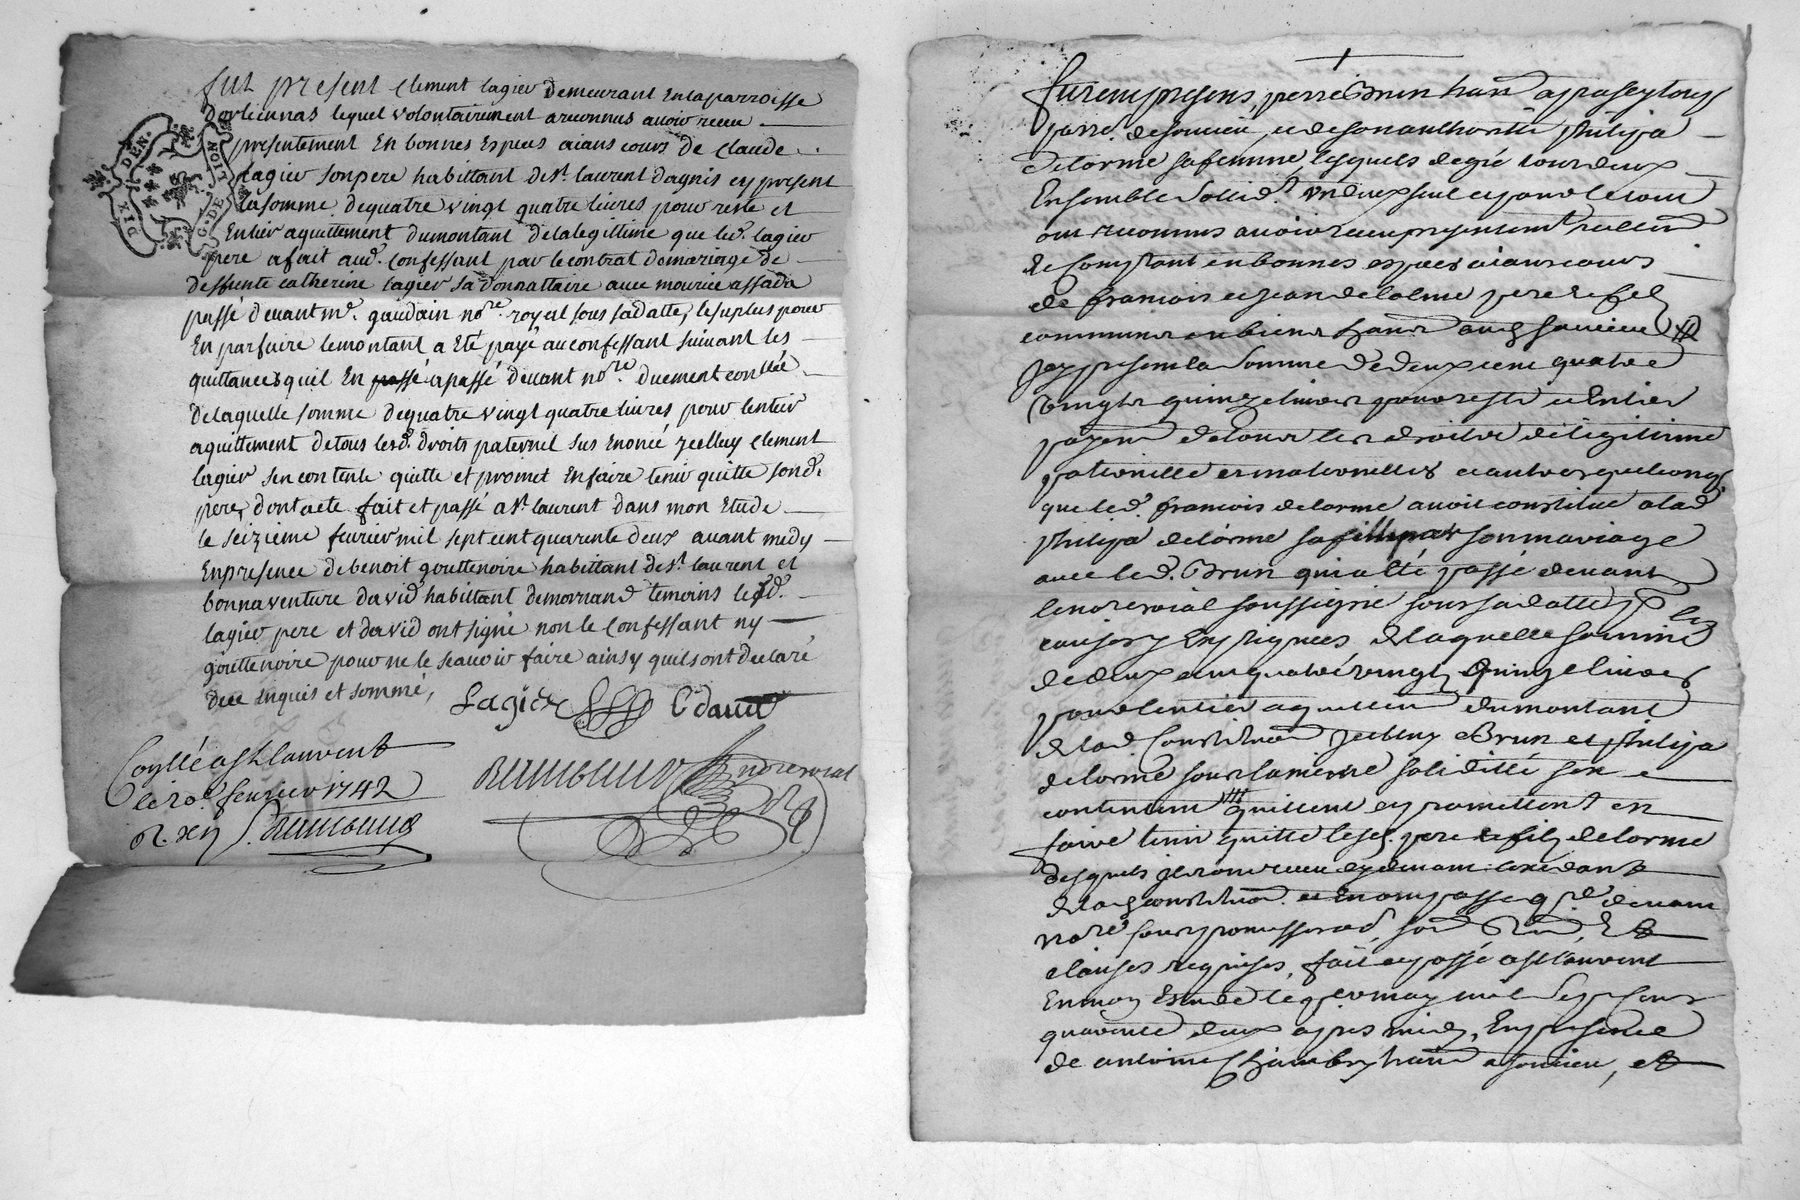 fut present Clement Lagier demeurant en la parroisse
Dorliennas lequel volontairement a reconnus avoir receu
presentement En bonnes Especes aiant cours de Claude
Lagier son pere habittant de St. laurent dagnis cy present
La somme de quatre vingt quatre livres pour reste et
Entier aquittement du montant de la legittime que led. lagier
pere a fait aud. Confessant par le contrat de mariage de
deffunte catherine lagier sa donnattaire avec mourice assada
passé devant me. gaudain nore. royal sous sa datte, le surplus pour
En parfaire le montant a Eté payé au confessant suivant les
quittances quil En passé a passé devant nore. duement conllé
De laquelle somme de quatre vingt quatre livres pour lentier
aquittement de tous lesd. droits paternel sus Enoncé jcelluy Clement
lagier sen contente quitte et promet En faire tenir quitte sond.
pere, dont acte fait et passé a St. laurent dans mon Etude
le seizieme fevrier mil sept cent quarente deux avant midy
En presence de benoit gouttenoire habittant de St. laurent et
bonnaventure david habittant de mornand temoins lesd.
lagier pere et david ont signé non le Confessant ny
gouttenoire pour ne le scavoir faire ainsy quils ont declaré
Deue enquis et sommé,
Lagier C david
DIX DEN.
G. DE LION
Conllé a St Laurent
le 20e. fevrier 1742
R. xij s. Rambaud
Rambaud nore royal
furent presens, pierre Brun hant a
parre. de soucieu, et de son authorité philipa
Delorme sa femme lesquels de gré tous deux
Ensemble sollid.t un d'eux seul et pour le tout
ont reconnus avoir receu presentemt reellemt
et Comptant en bonnes especes aiant cours
de francois et jean delorme pere et fils
communs en biens hants aud soucieu
jcy presens la somme De deux cent quatre
vingts quinze livres pour reste et Entier
payemt de tous les droits de legitime
paternelle et maternelle et autres quelconqs
que led. francois delorme avoit constitué a lad
philipa delorme sa fille par son mariage
avec led. Brun qui a été passé devant
le nore royal soussigné sous sa datte
causes y Enseignées de laquelle somme
de deux cent quatre vingt quinze livres
pour lentier aquittemt du montant
de lad Constitution jceluy Brun et philipa
delorme sous la meme solidité sen
contentent quittent et promettent en
faire tenir quitte lesd. pere et fils delorme
desquels jls ont receu cy devant lexedant
de lad constitution. et En ont passé qce. devant
nore sous promesse
clauses requises, fait et passé a St Laurent
En mon Etude le may mil sept cent
quarente deux apres midy, En presence
de antoine Chambry hant a soucieu, et